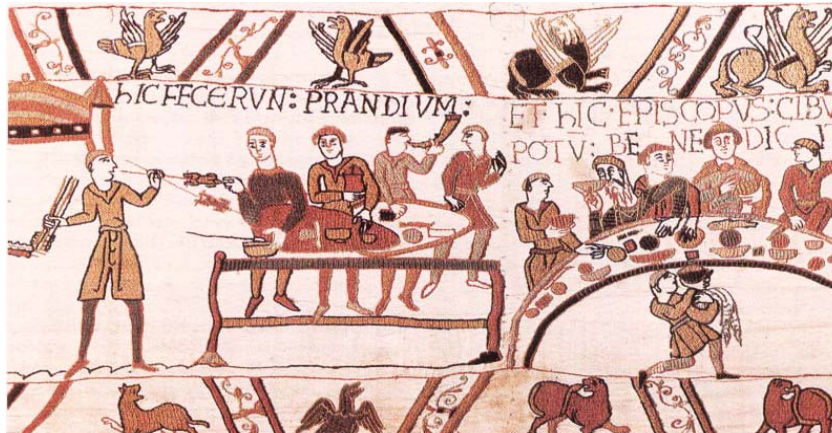 hIC FECERVN: PRANDIVM:
ET·hIC·EPISCOPVS:CIBV
POTV̄: BE NE DIC IT